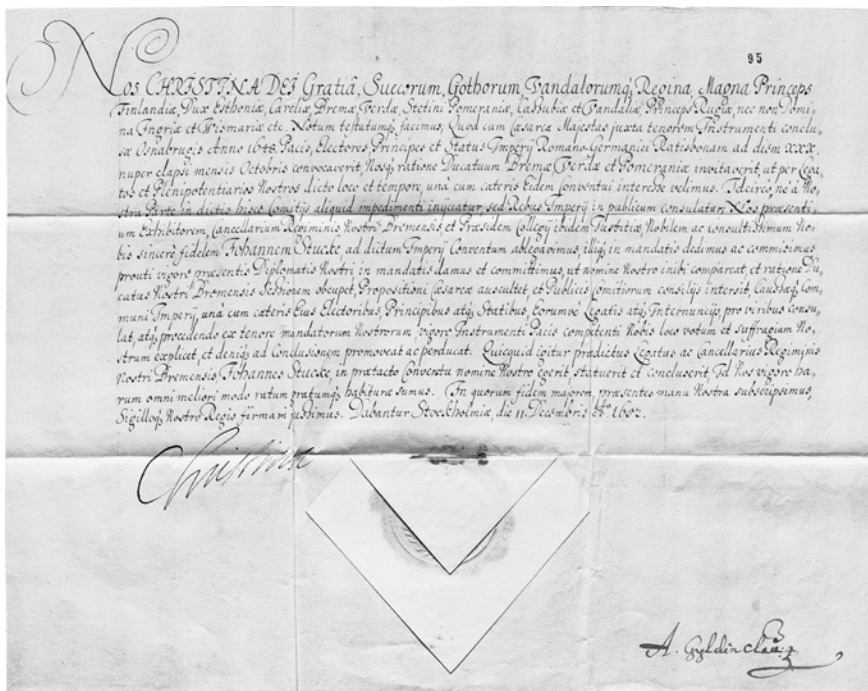 95
NOS CHRISTINA DEJ Gratiâ, Suecorum, Gothorum Vandalorumq, Regina, Magna Princeps
Finlandiæ, Dux Esthoniæ, Careliæ, Bremæ, Verdæ, Stetini Pomeraniæ, Cassubiæ et Vandaliæ, Princeps Rugiæ, nec non Domi„
na Ingriæ et Wismariæ etc. Notum testatumq, facimus, Quod cum Cæsarea Majestas juxta tenorem Instrumenti Conclu„
sæ Osnabrugis Anno 1648. Pacis, Electores Principes et Status Imperij Romano-Germanici Ratisbonam ad diem XXX.
nuper elapsi mensis Octobris convocaverit, Nosq, ratione Ducatuum Bremæ, Verdæ et Pomeraniæ invitaverit, ut per Lega„
tos et Plenipotentiarios Nostros dicto loco et tempore, unà cum cæteris Eidem Conventui interesse velimus. Idcirco, ne à No„
stra Parte in dictis hisce Comitijs aliquid impedimenti injiciatur, sed Rebus Imperij in publicum consulatur, Nos præsenti„
um Exhibitorem, Cancellarium Regiminis Nostri Bremensis, et Præsidem Collegij ibidem Justitiæ, Nobilem ac consultissimum No„
bis sincerè fidelem Johannem Stucke, ad dictum Imperij Conventum ablegavimus, illiq, in mandatis dedimus ac commisimus,
prouti vigore præsentis Diplomatis Nostri in mandatis damus et committimus, ut nomine Nostro inibi compareat, et ratione Du„
catus Nostri Bremensis Sessionem occupet, Propositioni Cæsareæ auscultet, et Publicis Comitiorum consilijs intersit, Causasq, Com„
muni Imperij, una cum cæteris Eius Electoribus, Principibus atq, Statibus, Eorumve Legatis atq, Internuncijs, pro viribus consu„
lat, atq, procedendo ex tenore mandatorum Nostrorum, vigore Instrumenti Pacis competenti Nobis loco votum et suffragium No„
strum explicet, et deniq, ad Conclusionem promoveat ac perducat. Quicquid igitur prædictus Legatus ac Cancellarius Regiminis
Nostri Bremensis, Johannes Stucke, in prætacto Conventu nomine Nostro egerit, statuerit et concluserit, Id Nos vigore ha„
rum omni meliori modo ratum gratumq, habituræ sumus. In quorum fidem majorem, præsentes manu Nostra subscripsimus,
Sigilloq, Nostro Regio firmari jussimus. Dabantur Stockholmiæ, die 11. Decembris Ao 1652.
Christina
A. Gyldenclau